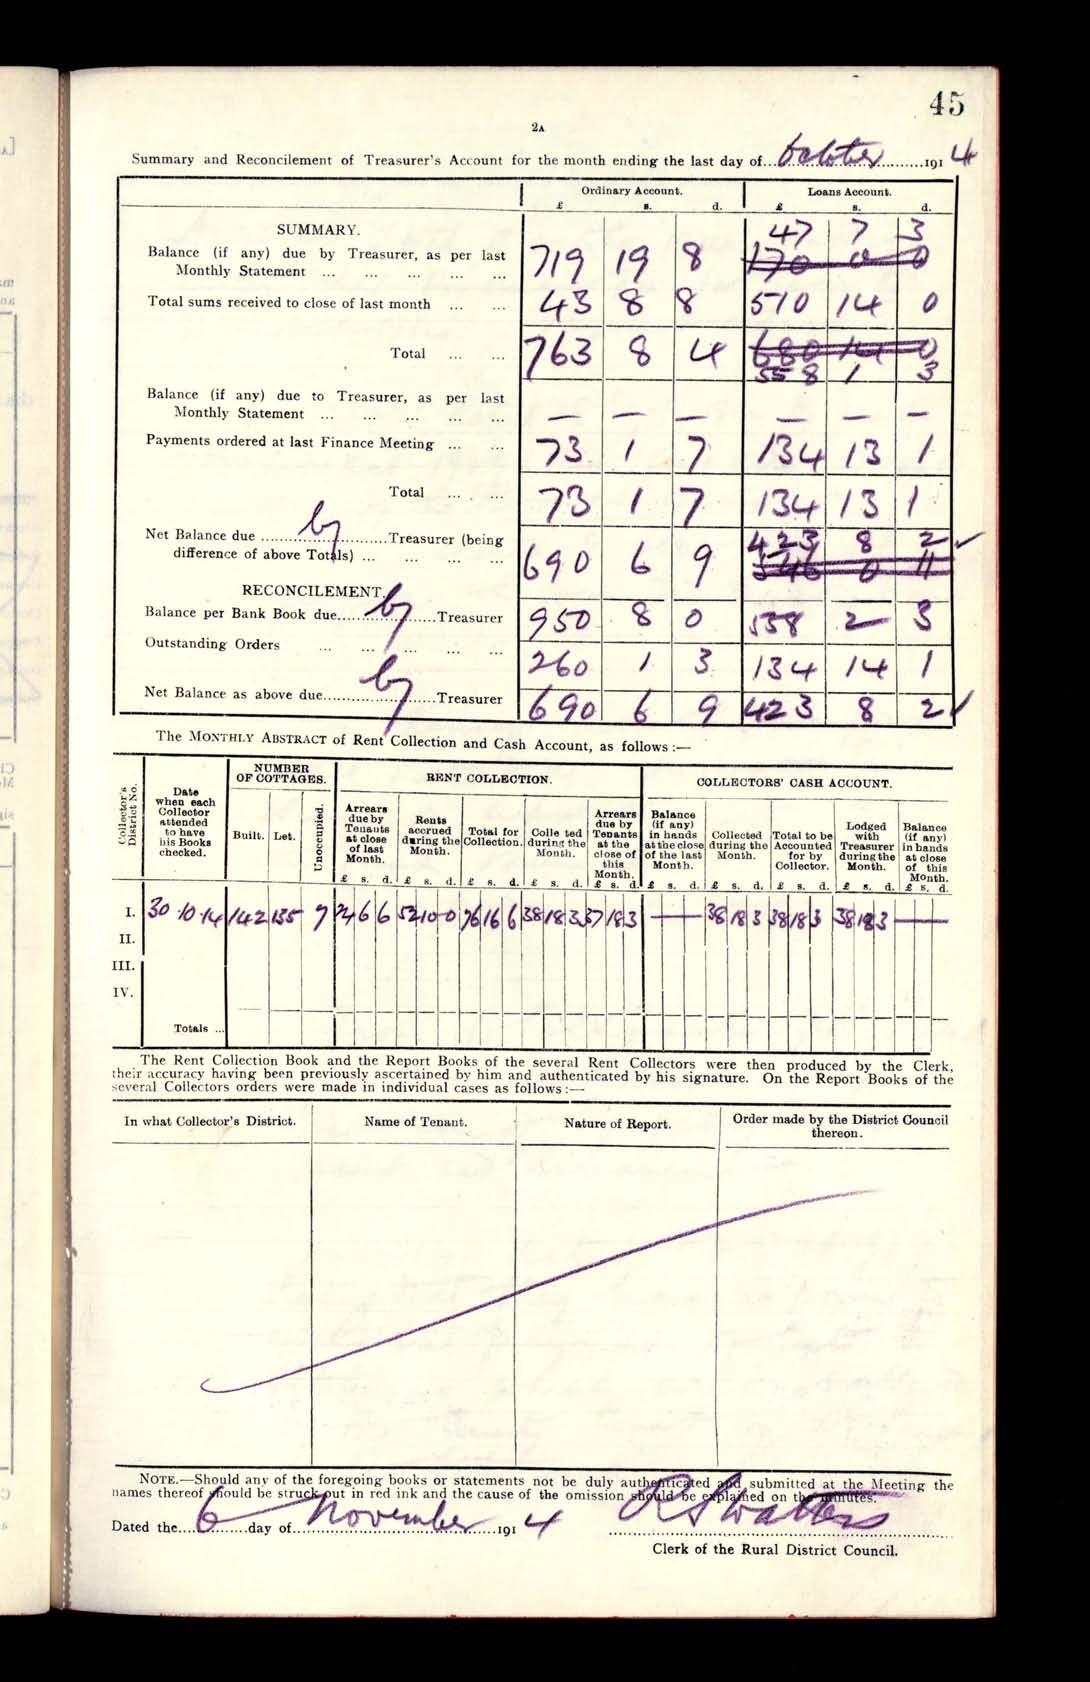 45
2A
Summary and Reconcilement of Treasurer's Account for the month ending the last day of...October...191 4
Ordinary Account. Loans Account.
£ s. d. £ s. d.
SUMMARY.
47 7 3
Balance (if any) due by Treasurer, as per last
Monthly Statement ... ... ... ... ... 719 19 8 170 0 0
Total sums received to close of last month ... ... 43 8 8 510 14 0
Total ... ... 763 8 4 680 14 0
558 1 3
Balance (if any) due to Treasurer, as per last
Monthly Statement ... ... ... ... ... — — — — — —
Payments ordered at last Finance Meeting ... ... 73 1 7 134 13 1
Total ... ... 73 1 7 134 13 1
Net Balance due ...by...Treasurer (being 423 8 2
difference of above Totals) ... ... ... ... 690 6 9 546 0 11
RECONCILEMENT.
Balance per Bank Book due...by...Treasurer 950 8 0 558 2 3
Outstanding Orders ... ... ... ... ... 260 1 3 134 14 1
Net Balance as above due...by...Treasurer 690 6 9 423 8 2
The MONTHLY ABSTRACT of Rent Collection and Cash Account, as follows :—
Collector's District No.
Date when each Collector attended to have his Books checked.
NUMBER OF COTTAGES.
Built. Let. Unoccupied.
RENT COLLECTION.
Arrears due by Tenants at close of last Month. £ s. d.
Rents accrued during the Month. £ s. d.
Total for Collection. £ s. d.
Colle ted during the Month. £ s. d.
Arrears due by Tenants at the close of this Month. £ s. d.
COLLECTORS' CASH ACCOUNT.
Balance (if any) in hands at the close of the last Month. £ s. d.
Collected during the Month. £ s. d.
Total to be Accounted for by Collector. £ s. d.
Lodged with Treasurer during the Month. £ s. d.
Balance (if any) in hands at close of this Month. £ s. d.
I. 30·10·14 142 135 7 24 6 6 52 10 0 76 16 6 38 18 3 37 18 3 — 38 18 3 38 18 3 38 18 3 —
II.
III.
IV.
Totals ...
The Rent Collection Book and the Report Books of the several Rent Collectors were then produced by the Clerk,
their accuracy having been previously ascertained by him and authenticated by his signature. On the Report Books of the
several Collectors orders were made in individual cases as follows :—
In what Collector's District. Name of Tenant. Nature of Report. Order made by the District Council
thereon.
NOTE.—Should any of the foregoing books or statements not be duly authenticated and submitted at the Meeting the
names thereof should be struck out in red ink and the cause of the omission should be explained on the minutes.
Dated the...6...day of...November...191 4 R S Watters
Clerk of the Rural District Council.